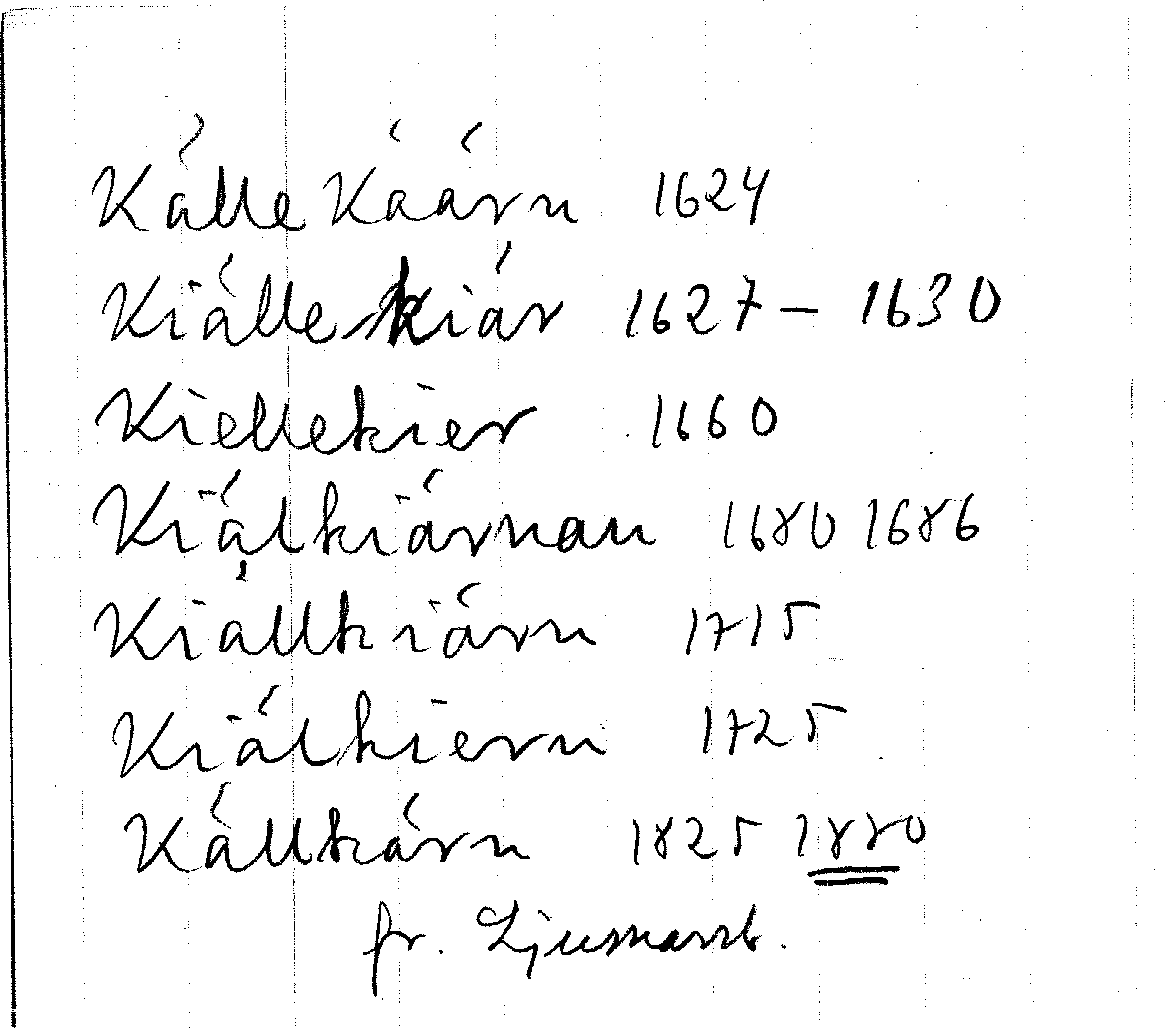 Källe Käärn 1624
Kiälle kiär 1627 – 1630
Kiellekier 1660
Kiälkiärnan 1680 1686
Kiällkiärn 1715
Kiälkiern 1725
Källkärn 1825 1880
fr. Ljusnarsb.